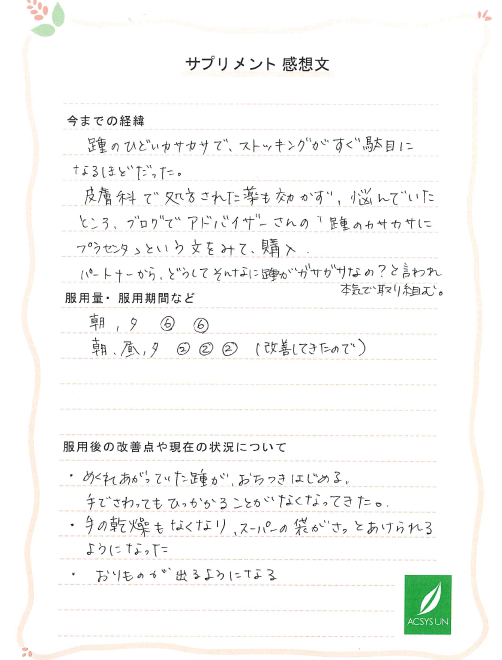 サプリメント 感想文
今までの経緯
踵のひどいカサカサで、ストッキングがすぐ駄目に
なるほどだった。
皮膚科で処方された薬も効かず、悩んでいた
ところ、ブログでアドバイザーさんの「踵のカサカサに
プラセンタ」という文をみて、購入.
パートナーから、どうしてそんなに踵がガサガサなの?と言われ
本気で取り組む。
服用量・服用期間など
朝,夕 ⑥ ⑥
朝.昼,夕 ② ② ② (改善してきたので)
服用後の改善点や現在の状況について
・めくれあがっていた踵が、おちつきはじめる。
手でさわってもひっかかることがなくなってきた。
・手の乾燥もなくなり、スーパーの袋がさっとあけられる
ようになった
・ おりものが出るようになる
ACSYS UN